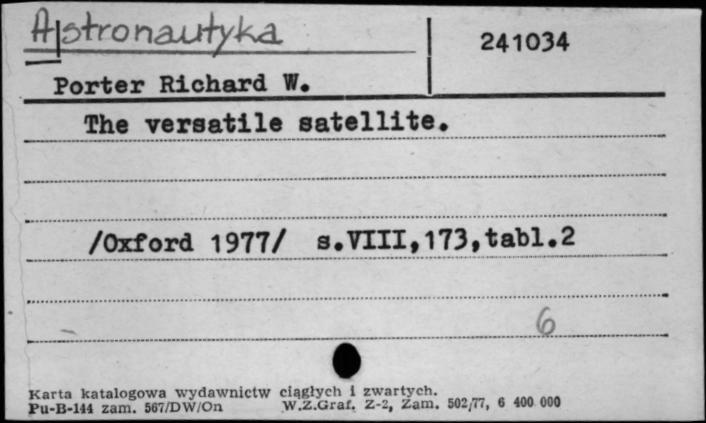 Astronautyka
241034
Porter Richard W.
The versatile satellite.
/Oxford 1977/ s.VIII,173,tabl.2
6
Karta katalogowa wydawnictw ciągłych i zwartych.
Pu-B-144 zam. 567/DW/On W.Z.Graf. Z-2, Zam. 502/77, 6 400 000